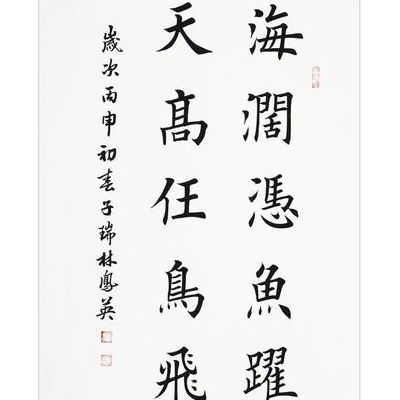 海濶憑魚躍
天髙任鳥飛
歲次丙申初春子瑞林鳳英